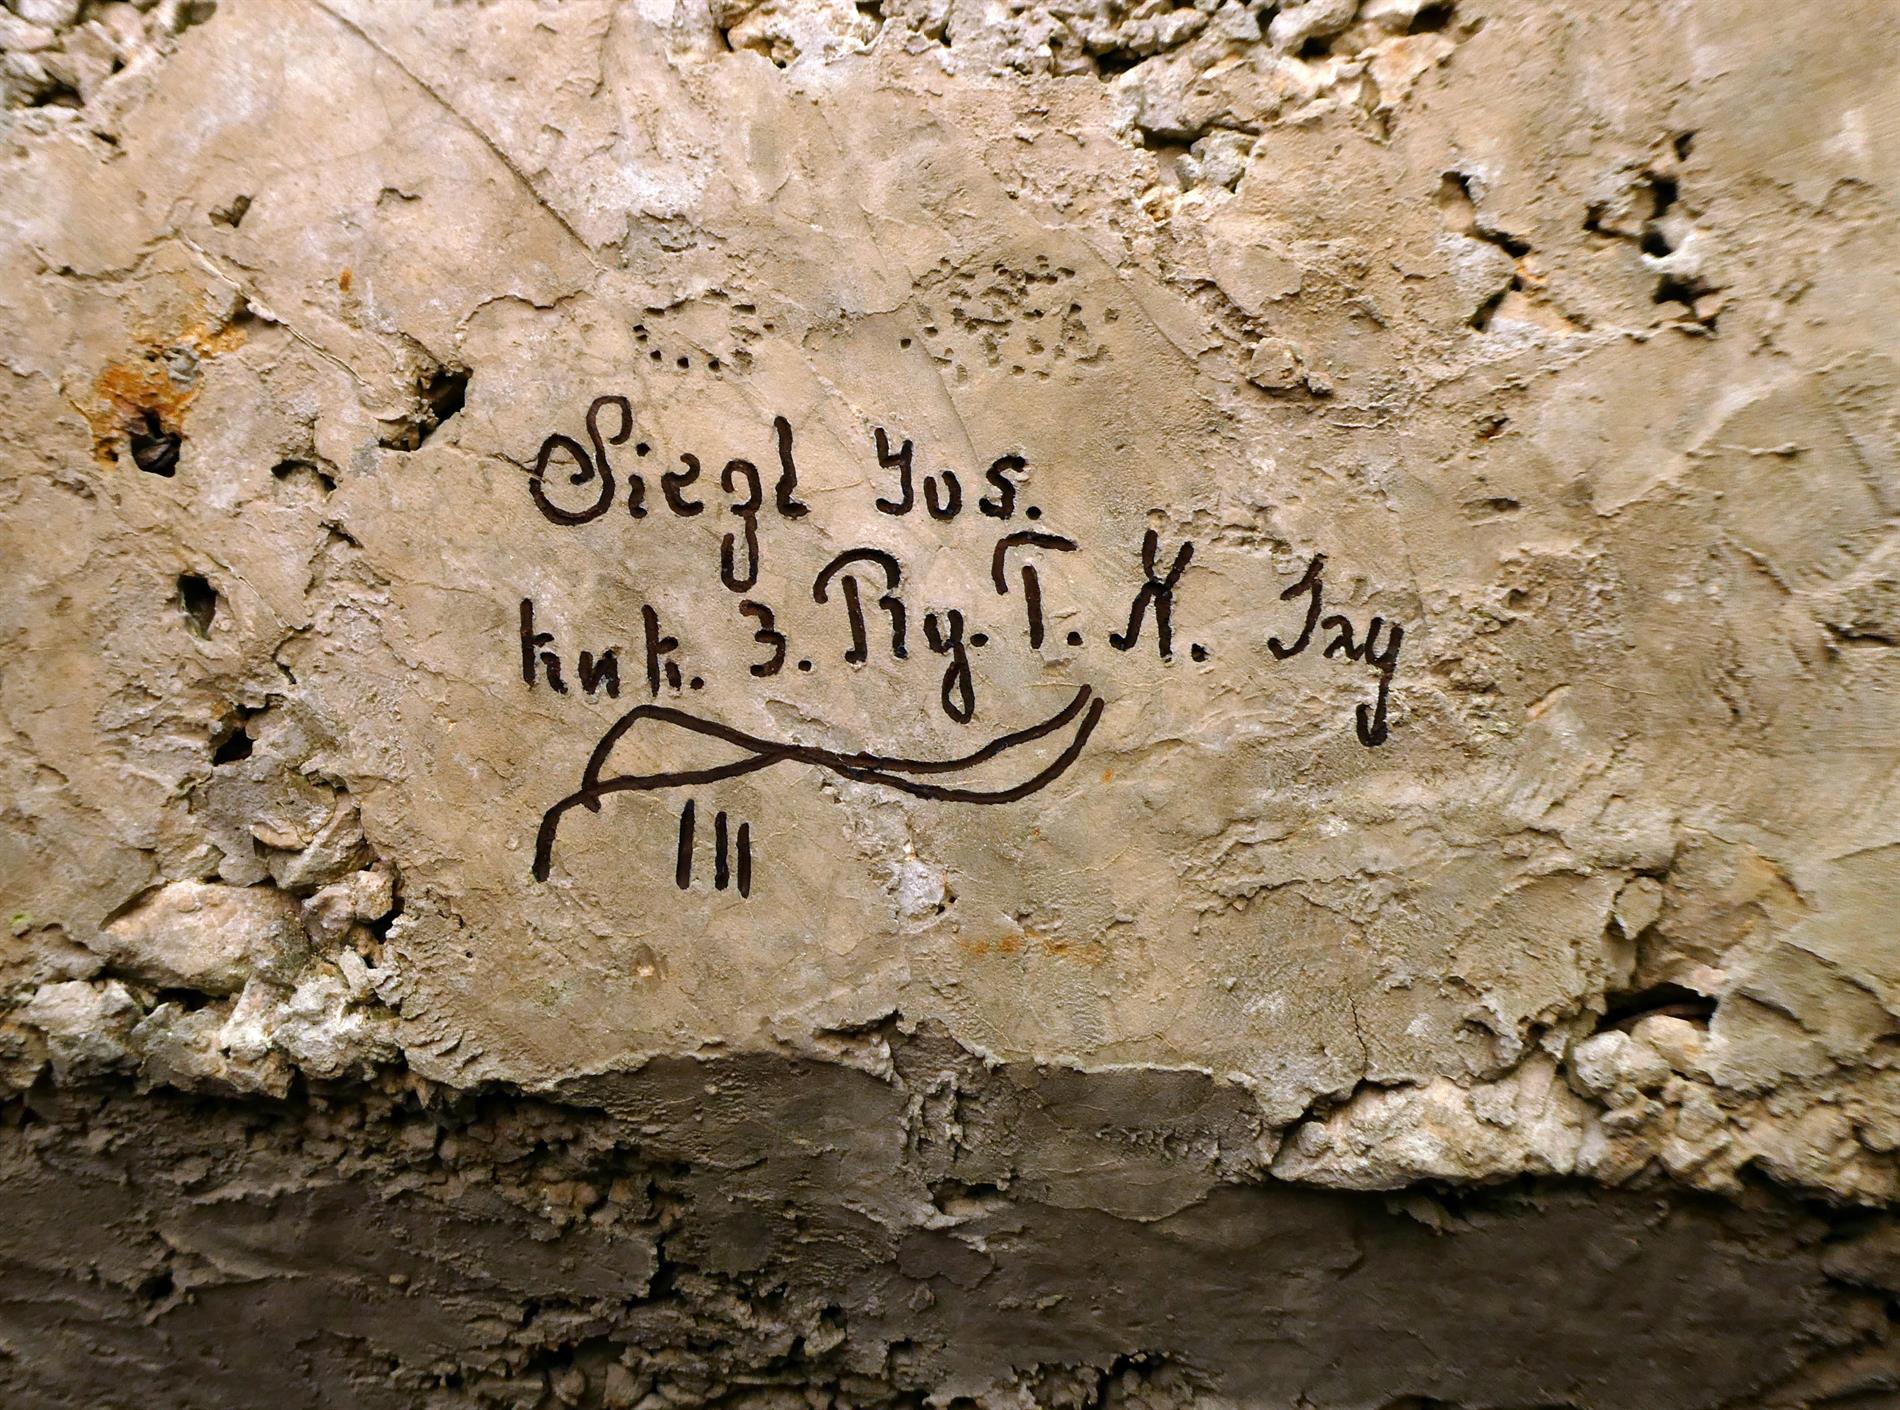 Siegl Jos.
kuk. 3. Rg. T. K. Jäg
III